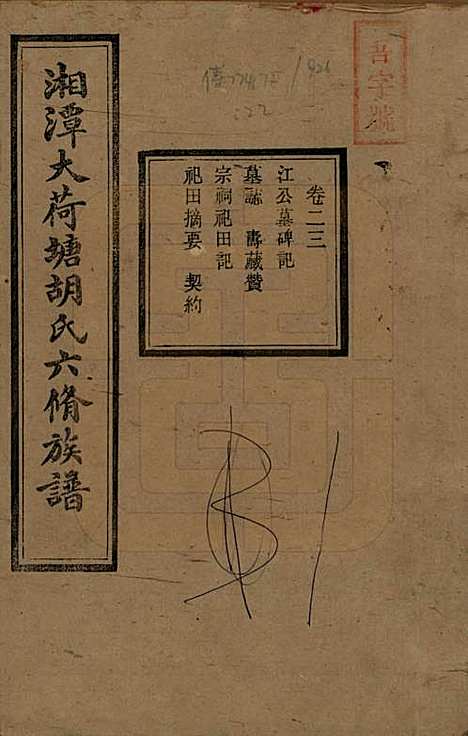 湘潭大荷塘胡氏六脩族譜
卷二三
江公墓碑記
墓誌　壽藏贊
宗祠祀田記
祀田摘要　契約
吾字號